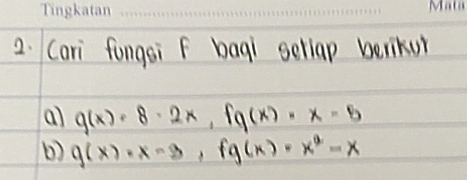 Tingkatan
Mata
2. Cari fungsi f bagi setiap berikut
a) g(x) = 8 - 2x, fg(x) = x - 5
b) g(x) = x - 3, fg(x) = x² - x